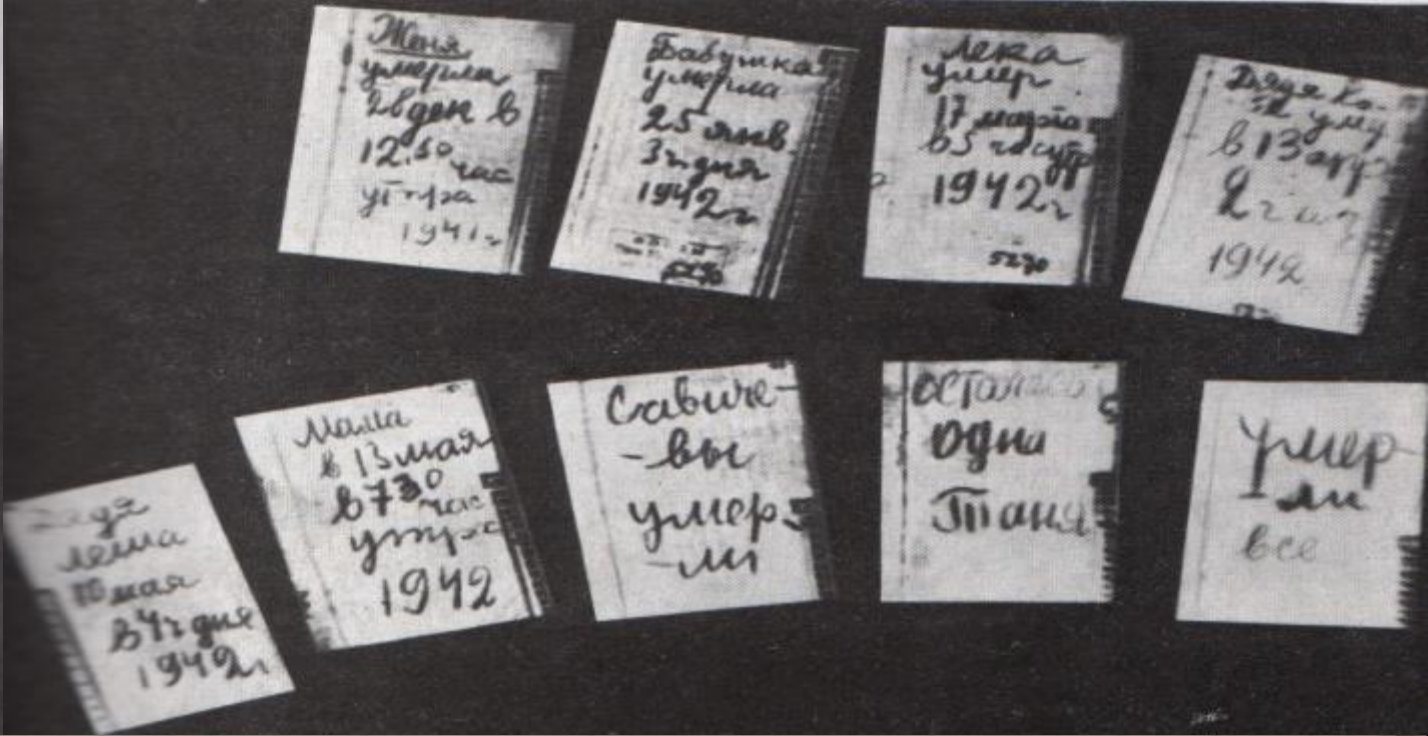 Женя
умерла
28 дек в
12.30 час
утра
1941 г
Бабушка
умерла
25 янв.
3 ч. дня
1942 г
Лека
умер
17 марта
в 5 час утр
1942 г
Дядя
ум
в 13 апр
2 ч
1942
Дядя
Леша
10 мая
в 4 ч дня
1942 г
Мама
в 13 мая
в 7 30 час
утра
1942
Савиче-
-вы
умер
-ли
осталась
одна
Таня
Умер
ли
все